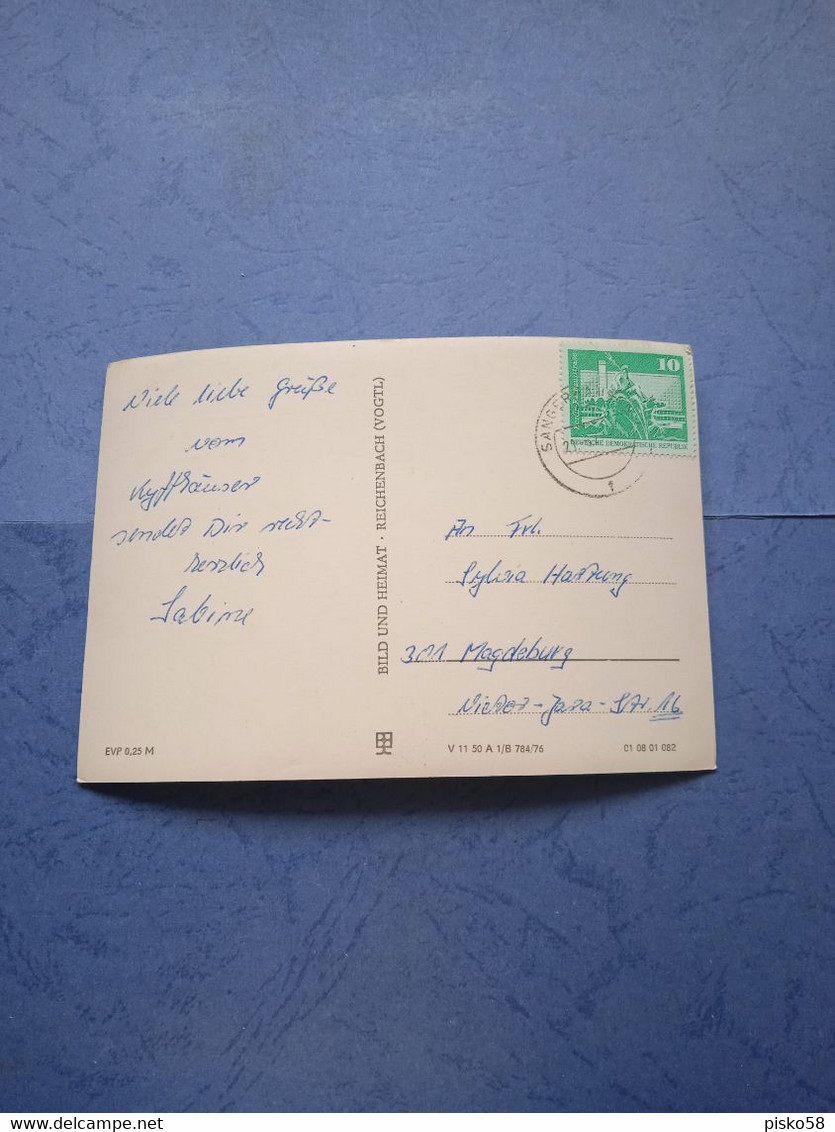 Viele liebe Grüße
vom
Kyffhäuser
sendet Dir recht-
herzlich
Sabine
EVP 0,25 M
BILD UND HEIMAT · REICHENBACH (VOGTL)
10
DEUTSCHE DEMOKRATISCHE REPUBLIK
An Frl.
Sylvia Hartung
301 Magdeburg
Victor-Jara-Str. 16
V 11 50 A 1/B 784/76
01 08 01 082
delcampe.net
pisko58